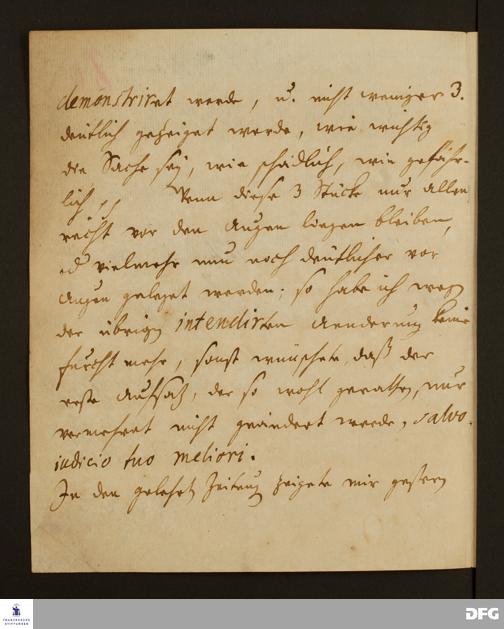 demonstriret werde, u. nicht weniger 3.
deutlich gezeiget werde, wie wichtig
die Sache sey, wie schädlich, wie gefähr-
lich pp Wenn diese 3 Stücke nur allen
recht vor den Augen liegen bleiben,
vielmehr nun noch deutlicher vor
Augen geleget werden; so habe ich wegen
der übrigen intendirten Aenderung keine
furcht mehr, sonst wünschete, daß der
erste Aufsatz, der so wohl gerathen, nur
vermehret nicht geändert werde, salvo
iudicio tuo meliori.
In den gelehrten Zeitung zeigete mir gestern
FRANCKESCHE STIFTUNGEN
DFG